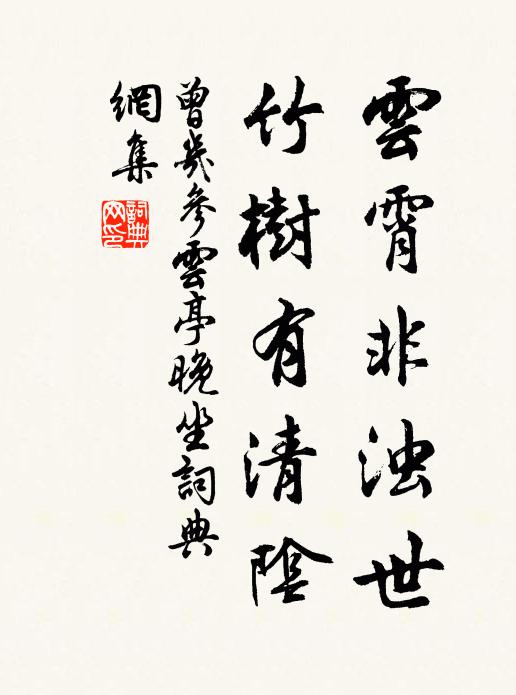 雲霄非浊世
竹樹有清陰
曾幾參雲亭晚坐詞典
網集
詞典
网印